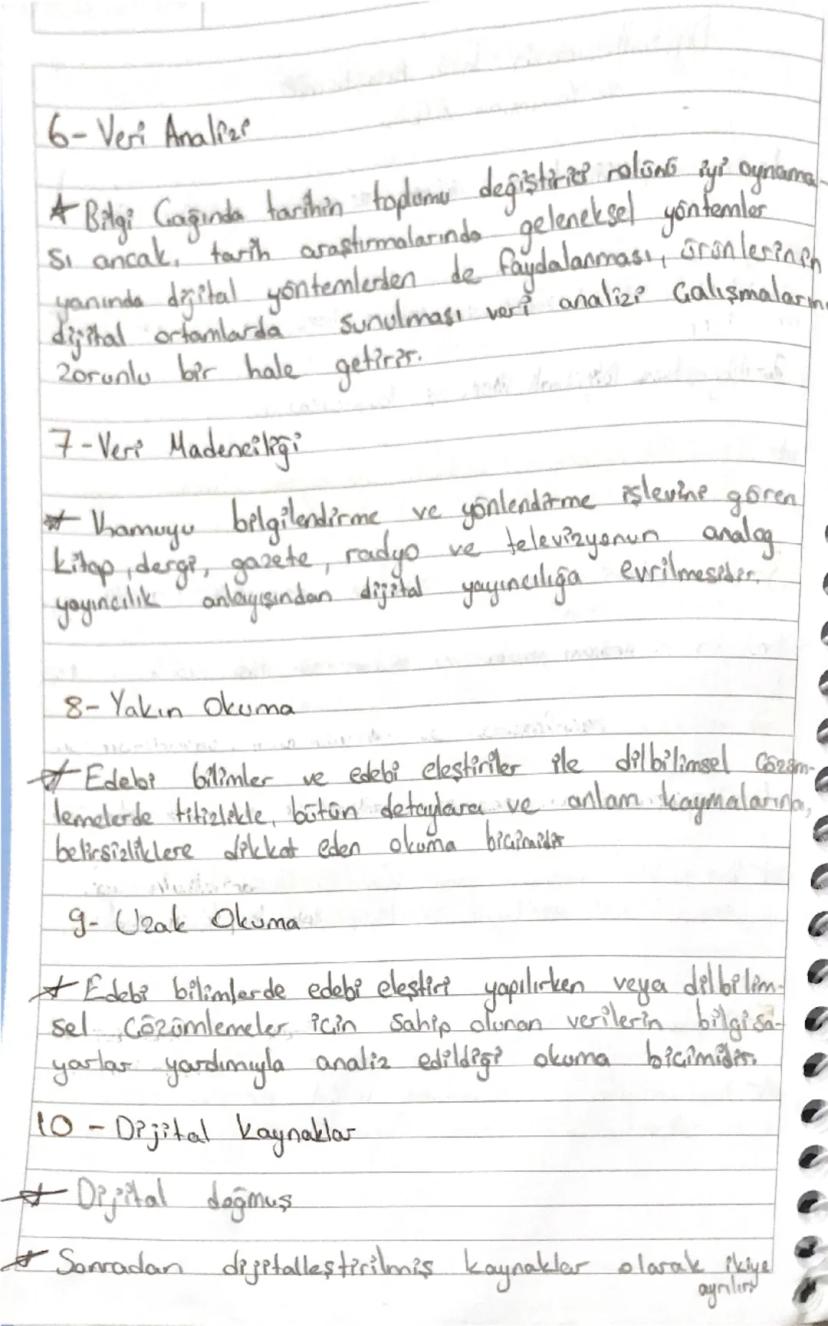 6- Veri Analizi
* Bilgi Çağında tarihin toplumu değiştirici rolünü iyi oynama-
sı ancak, tarih araştırmalarında geleneksel yöntemler
yanında dijital yöntemlerden de faydalanması, ürünlerinin
dijital ortamlarda sunulması veri analizi çalışmalarını
zorunlu bir hale getirir.
7-Veri Madenciliği
* Kamuyu bilgilendirme ve yönlendirme işlevini gören
kitap, dergi, gazete, radyo ve televizyonun analog
yayıncılık anlayışından dijital yayıncılığa evrilmesidir.
8- Yakın Okuma
* Edebi bilimler ve edebi eleştiriler ile dilbilimsel çözüm-
lemelerde titizlikle, bütün detaylara ve anlam kaymalarına,
belirsizliklere dikkat eden okuma biçimidir
9- Uzak Okuma
* Edebi bilimlerde edebi eleştiri yapılırken veya dilbilim-
sel çözümlemeler için sahip olunan verilerin bilgisa-
yarlar yardımıyla analiz edildiği okuma biçimidir.
10 - Dijital Kaynaklar
* Dijital doğmuş
* Sonradan dijitalleştirilmiş kaynaklar olarak ikiye
ayrılır